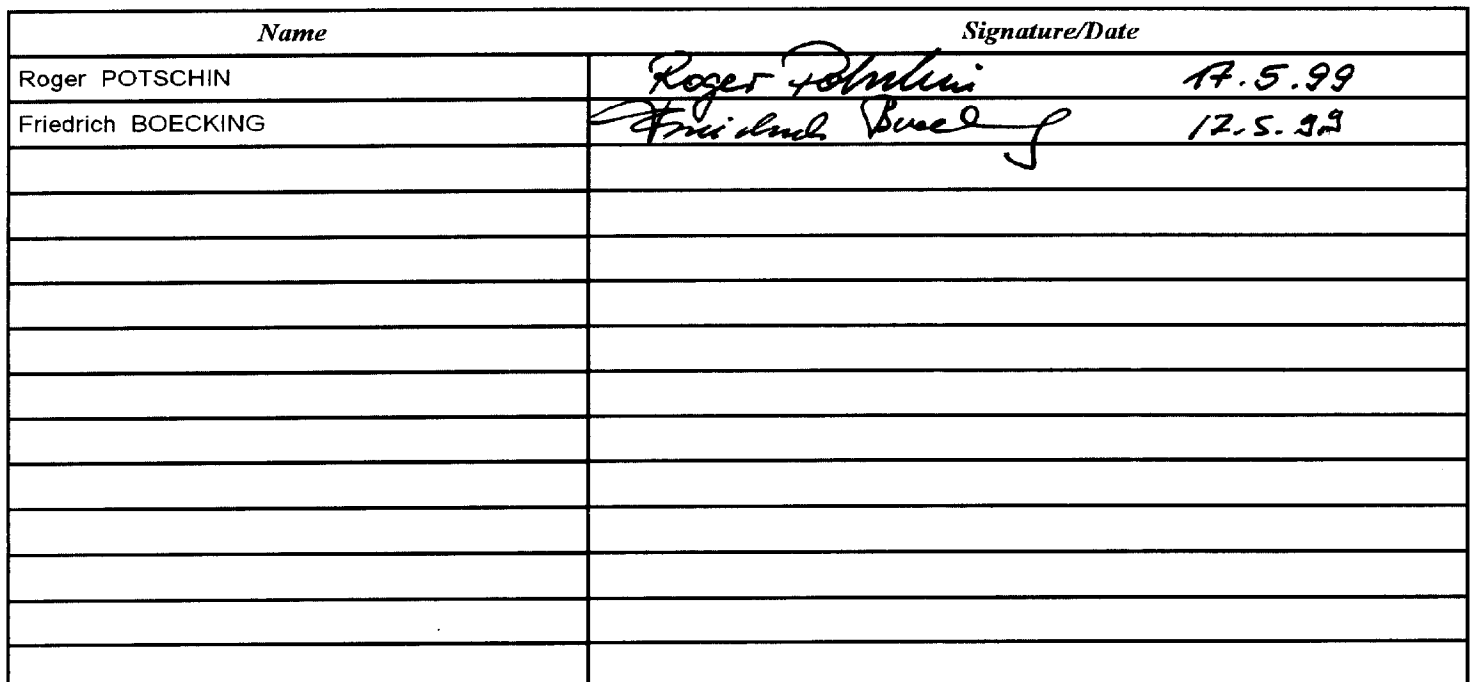 Name Signature/Date
Roger POTSCHIN Roger Potschin 17.5.99
Friedrich BOECKING Friedrich Boecking 12.5.99